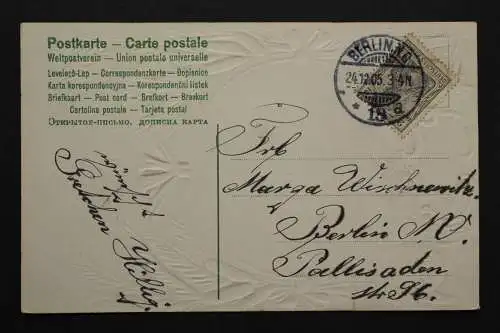 Postkarte — Carte postale
Weltpostverein — Union postale universelle
Levelező-Lap — Correspondenzkarte — Dopisnice
Karta korespondencyjna — Korespondenční listek
Briefkaart — Post card — Brefkort — Brevkort
Cartolina postale — Tarjeta postal
Открытое-письмо, дописна карта
BERLIN N.O.
24.12.05. 3-4N.
* 18 a
Frl
Marga Wischnewitz
Berlin N.
Pallisaden
str 96.
Gretchen